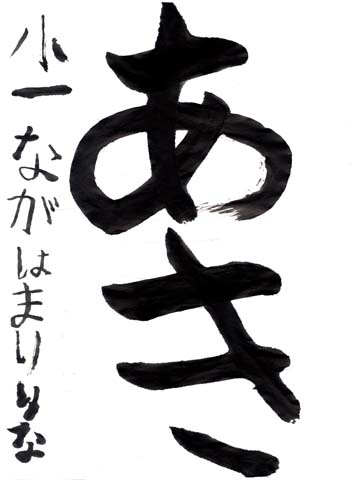 あき
小一 ながはまりりな